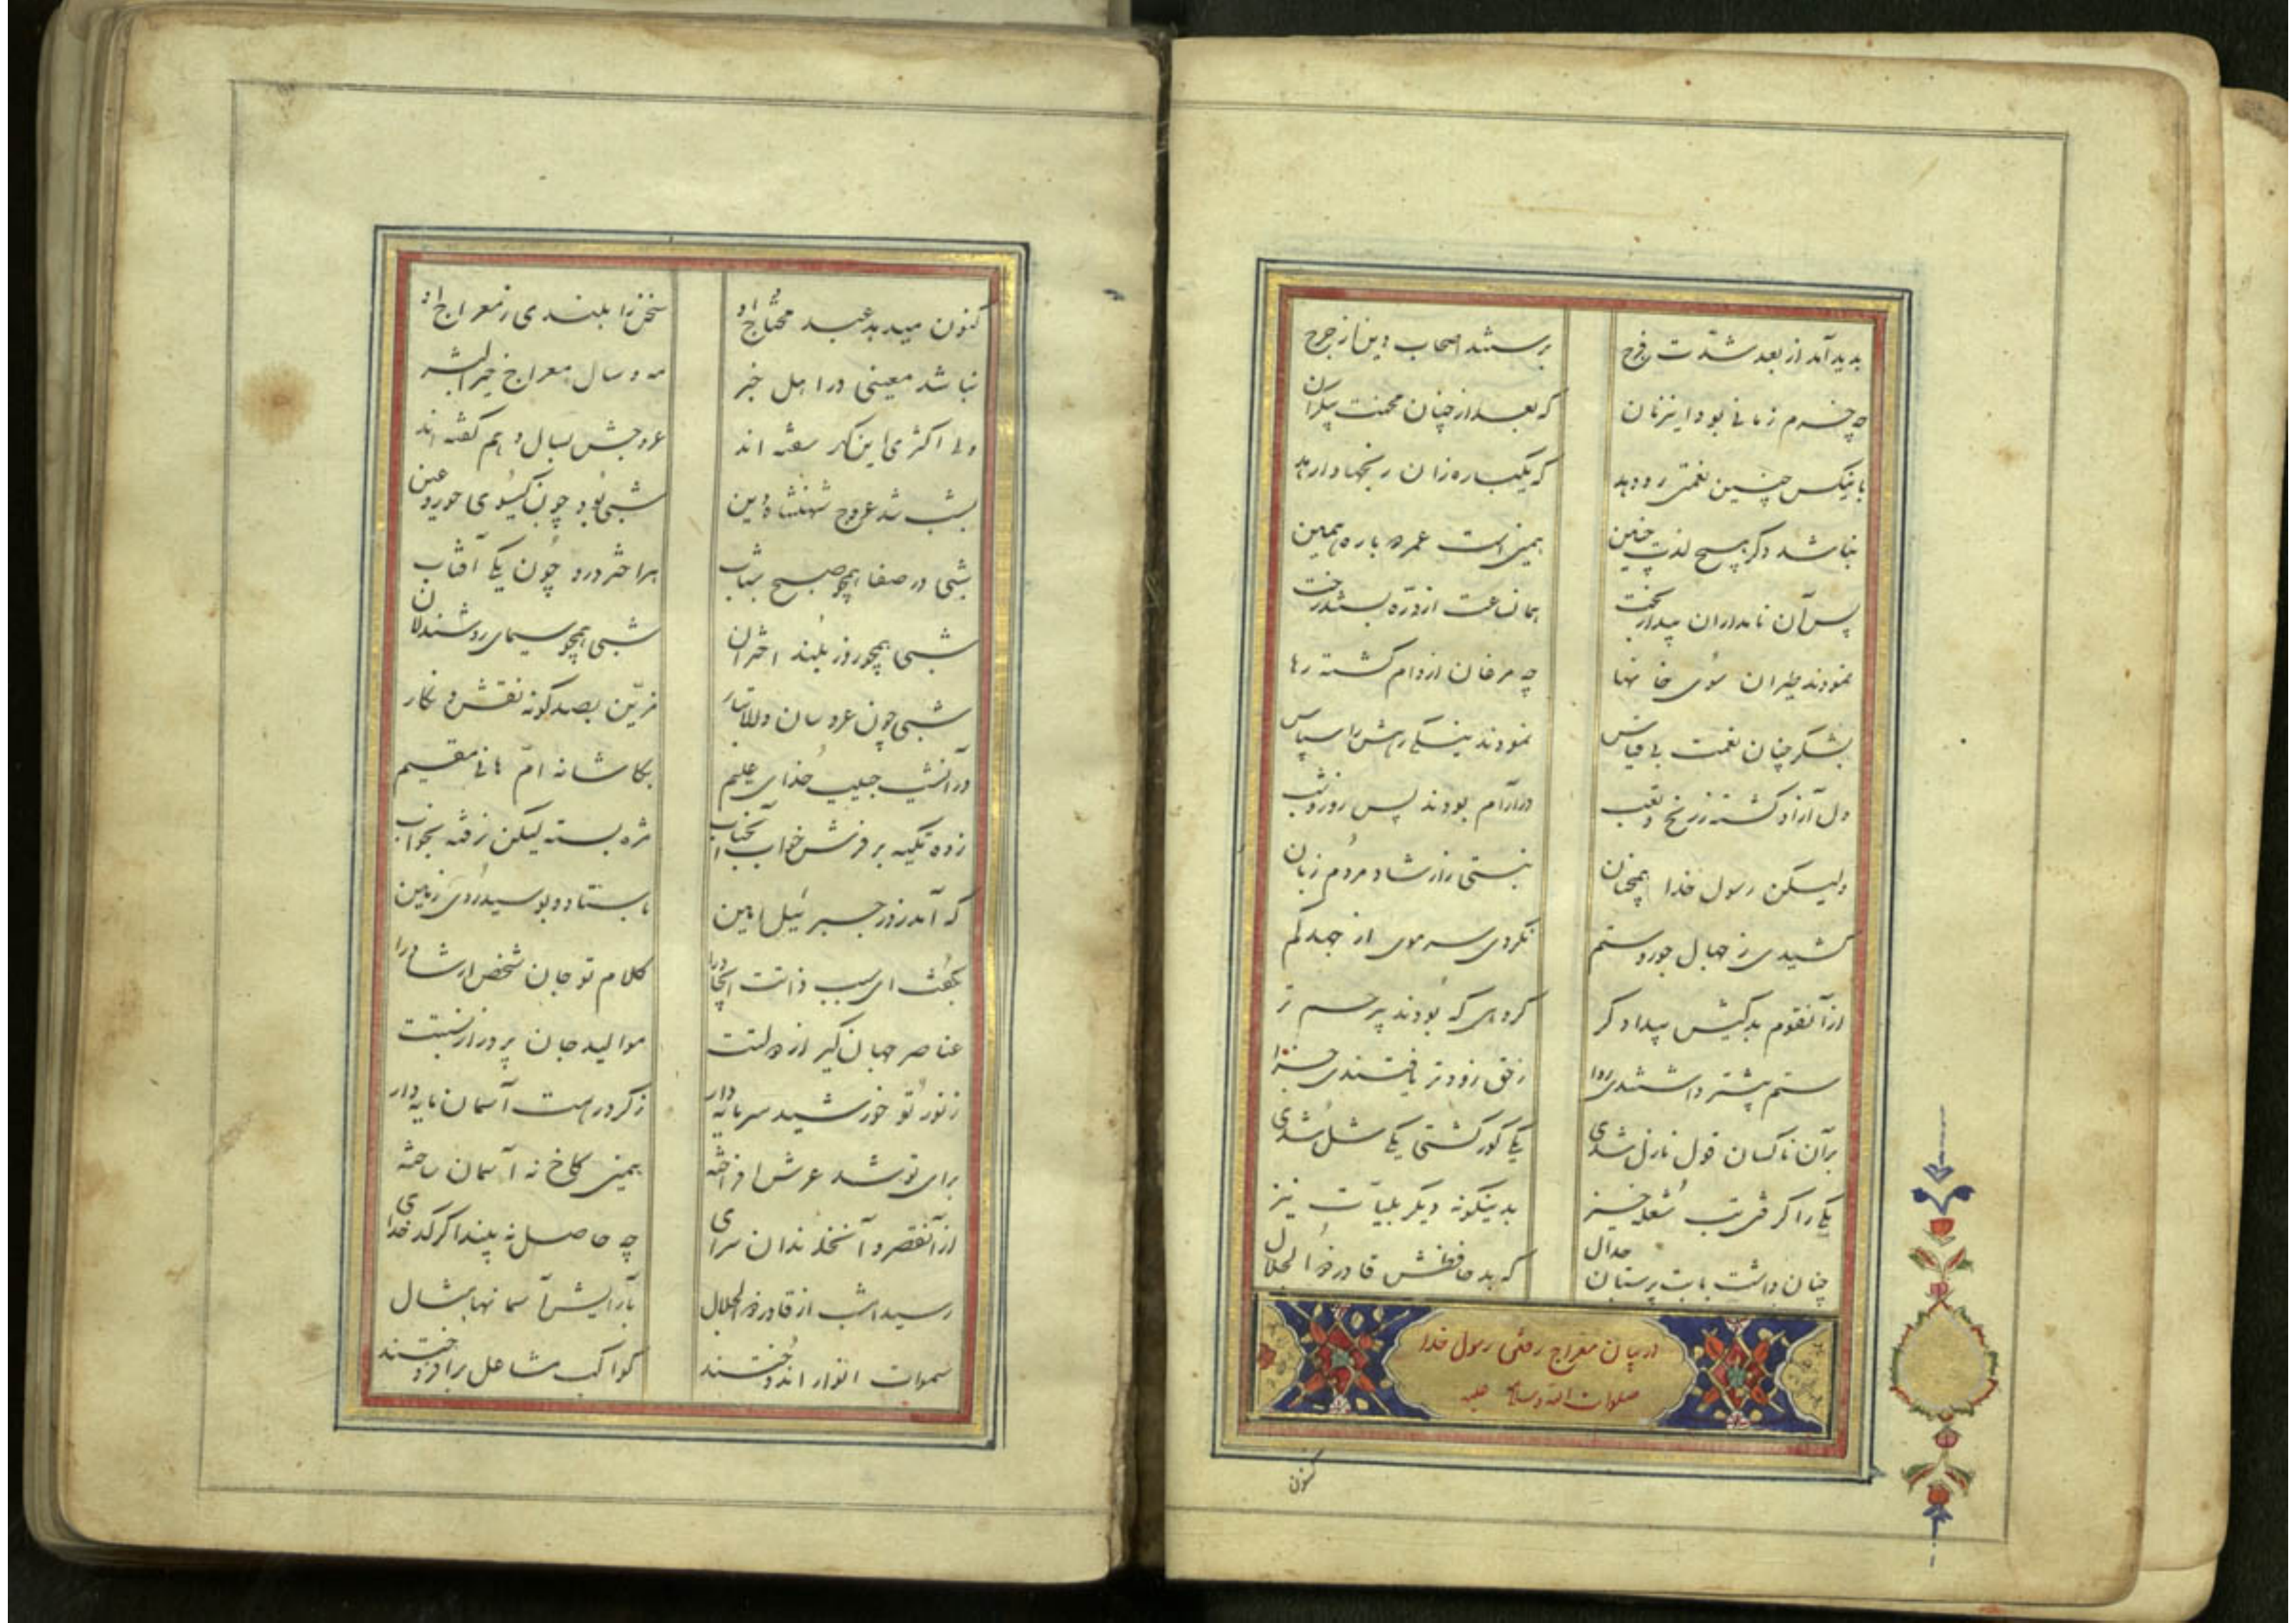 بدید آمد از بعد شدّت فرح برستند اصحاب دین از حرح
چه خرم زمانی بود اینزمان که بعد از چنان محنت بیکران
با ینکس چنین نعمتی رو دهد که یکباره زان رنجها وارهد
نباشد دکر هیچ لذت چنین همین است عمر دوباره همین
پس آن نامداران بیدار بخت همانساعت از درّه بستند رخت
نمودند طیران سوی خانها چه مرغان از دام کشته رها
بشکر چنان نعمت بی قیاس نمودند
دل آزاد کشته ز رنج و تعب در آرام بودند پس روز و شب
ولیکن رسول خدا همچنان نبستی ز ارشاد مردم زبان
کشیدی ز جهال جور و ستم نکردی سر موی از جهد کم
از آنقوم بدکیش بیدادکر کروهی که بودند پرحسم تر
ستم بیشتر داشتندی روا ز حق زودتر یافتندی جزا
بر آن ناکسان قول نازل شدی یکی کور کشتی یکی شل شدی
یکی را کرفتی تب شعله خیز بدینکونه دیکر بلیات نیز
چنان داشت با بت پرستان جدال که بد حافظش قادر ذوالجلال
در بیان معراج رفتن رسول خدا
صلوات الله و سلامه علیه
کنون
کنون میدهد عبد محتاج او سخن را بلندی ز معراج او
نباشد معینی در اهل خبر مه و سال معراج خیر البشر
ولی اکثری این کهر سفته اند عروجش بسال دهم کفته اند
بشب شد عروج شهنشاه دین شبی بود چون کیسوی حور عین
شبی در صفا همچو صبح شباب هر اختر درو چون یکی آفتاب
شبی همچو روز بلند اختران شبی همچو سیمای روشندلان
شبی چون عروسان دلاتبار مزیّن بصد کونه نقش و نکار
در آنشب حبیب خدای علیم بکاشانه امّ هانی مقیم
زده تکیه بر فرش خواب آنجناب مژه بسته لیکن نرفته بخواب
که آمد ز در جبرئیل امین باستاد و بوسید روی زمین
بکفت ای سبب ذاتت ایجاد را کلام تو جان شخص ارشاد را
عناصر جهان کیر از دولتت موالید جان پرور از نسبتت
ز نور تو خورشید سرمایه دار ز کرد رهت آسمان مایه دار
برای تو شد عرش افراخته همین کاخ نه آسمان ساخته
از آنقصر و آنخلد ندان سرای چه حاصل نه بیند اکر کدخدای
رسید امشب از قادر ذوالجلال بآرایش آسمانها مثال
سموات انوار اندوختند کواکب مشاعل برافروختند